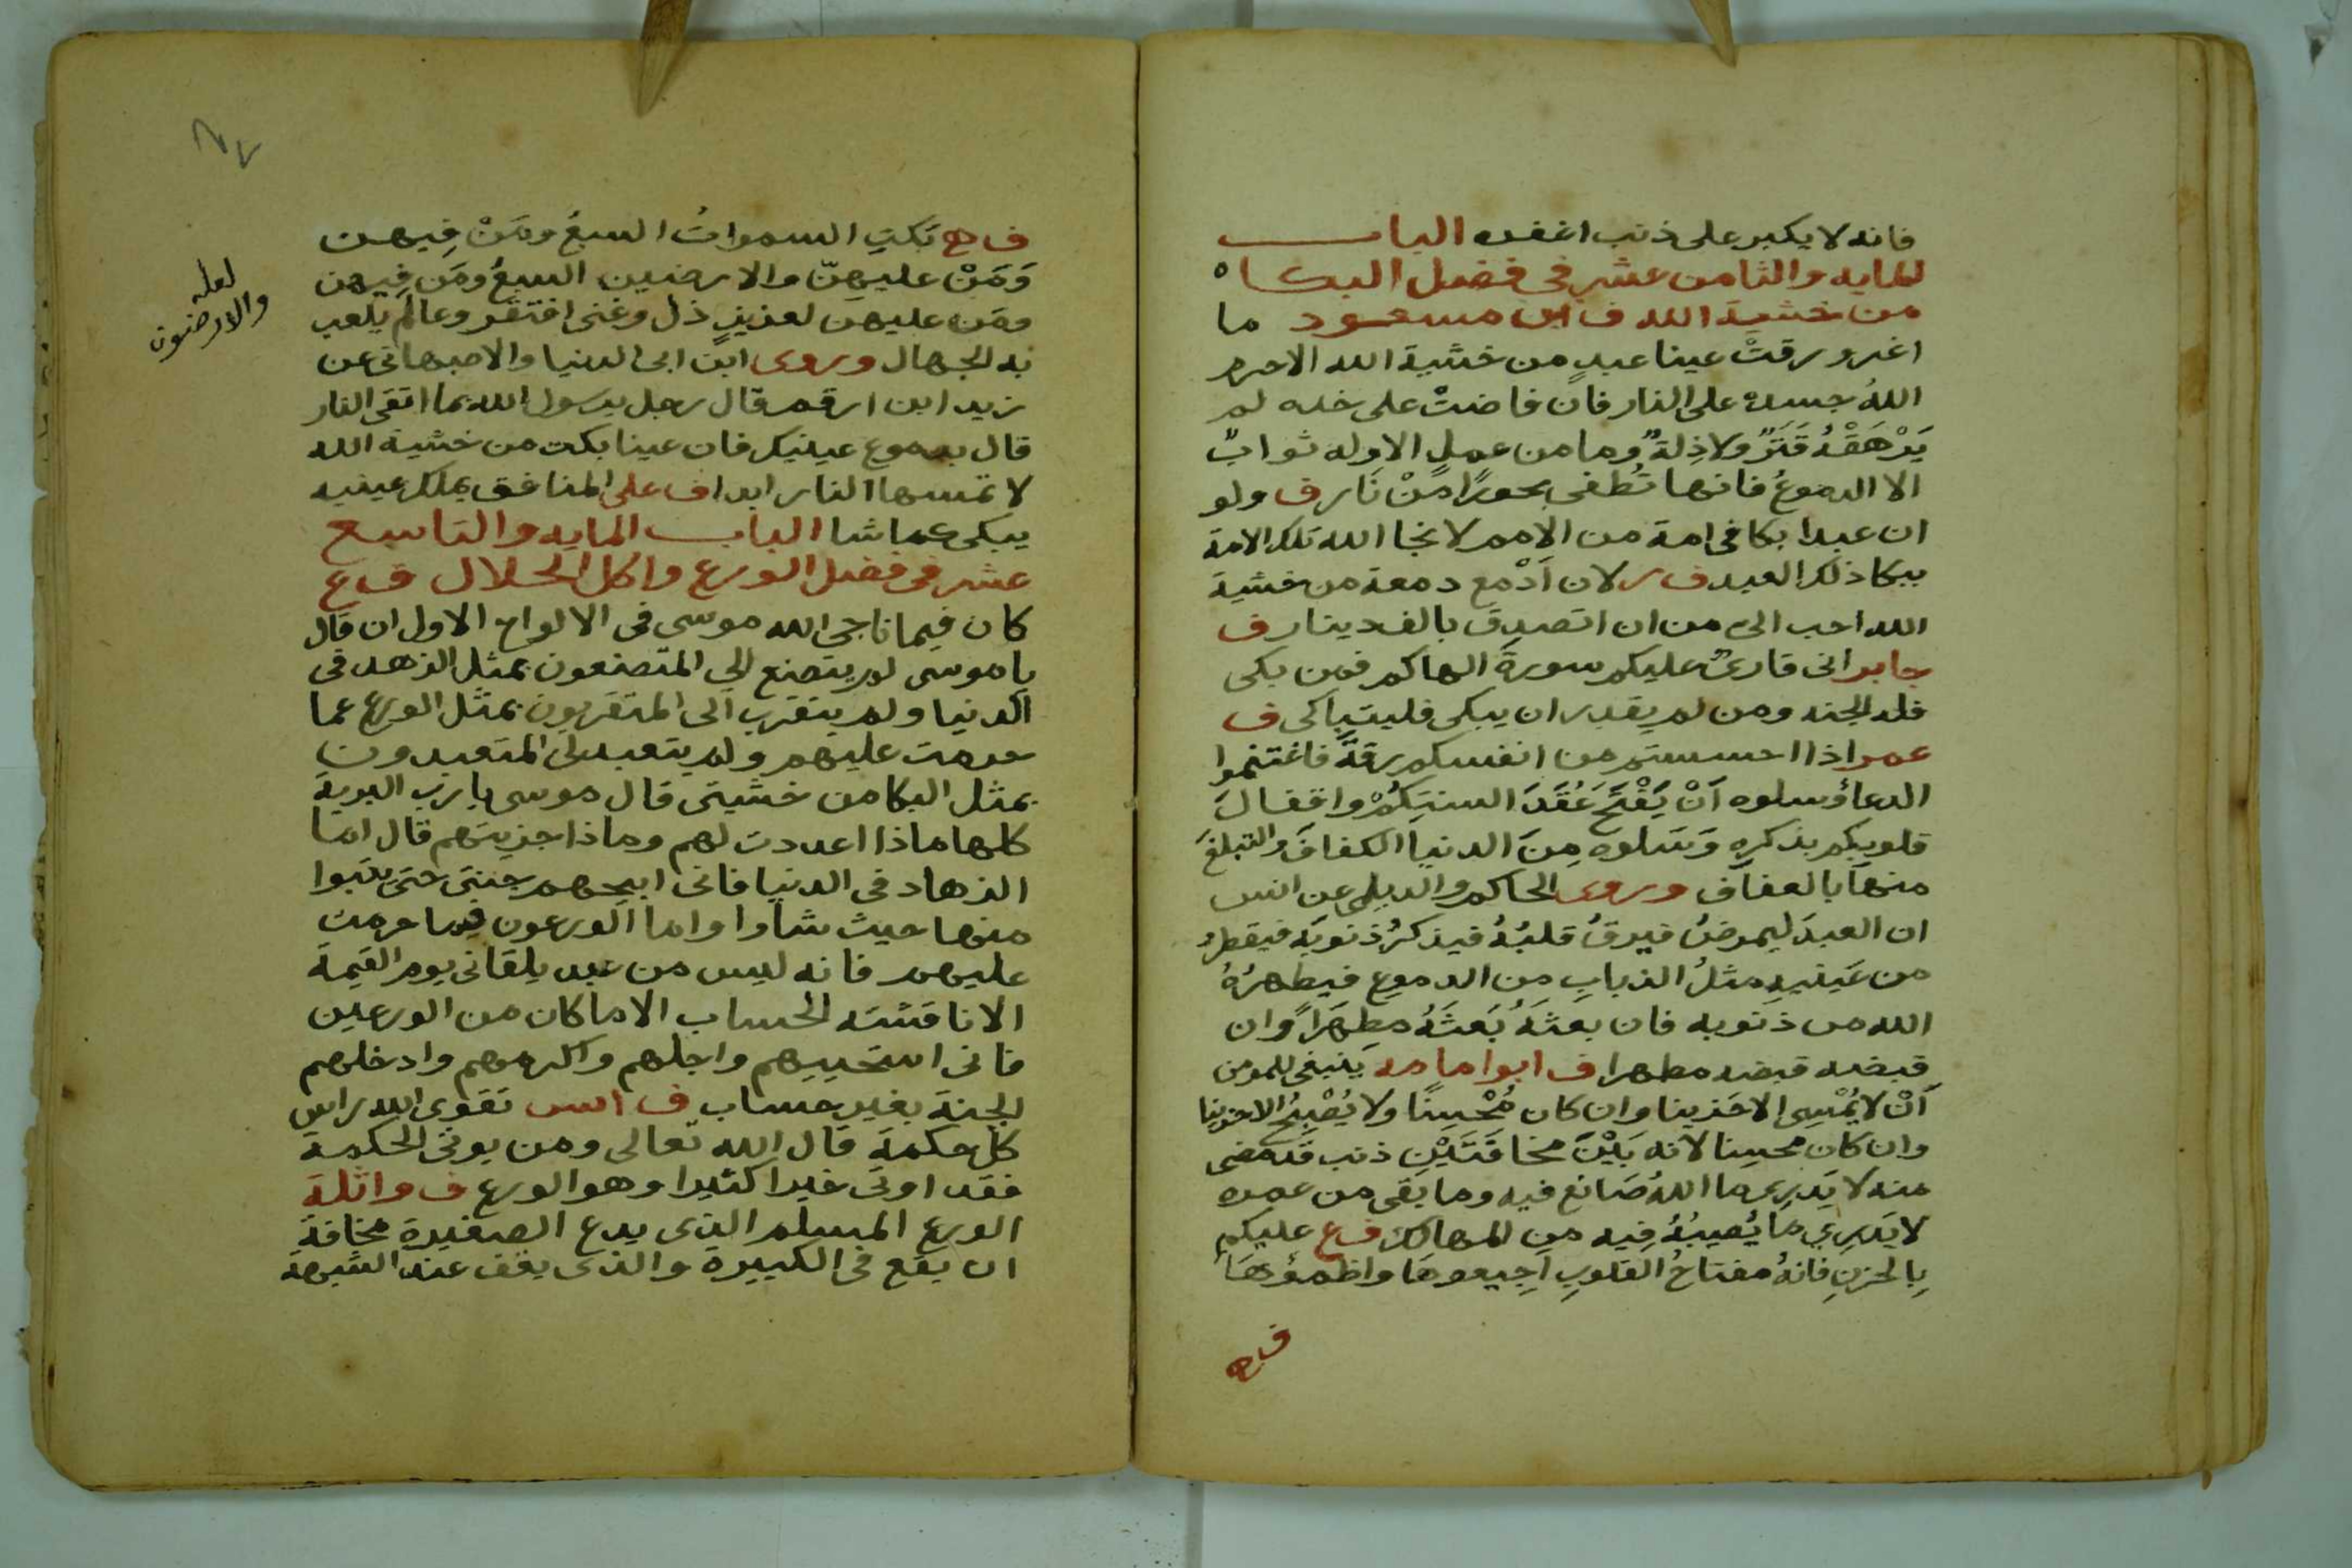 فانه لا يكبر على ذنب اغفره الباب
المايه والثامن عشر في فضل البكاء
من خشية الله ف ابن مسعود ما
اغرورقتْ عينا عبدٍ من خشية الله الا حرم
اللهُ جسده على النار فان فاضتْ على خده لم
يَرْهَقْهُ قَتَرٌ ولا ذِلةٌ وما من عملٍ الا وله ثوابٌ
الا الدموعُ فانها تُطفى بحورًا مِنْ نَار ف ولو
ان عبدا بكا في امة من الامم لانجا الله تلك الامة
ببكا ذلك العبد ف ر لان اَدْمع دمعة من خشية
الله احب الي من ان اتصدق بالف دينار ف
جابر اني قارئٌ عليكم سورةَ الهاكم فمن بكى
فله الجنه ومن لم يقدر ان يبكى فليتباكى ف
عمر اذا احسستم من انفسكم رقةً فاغتنموا
الدعأ وسلوه اَنْ يَفْتَحَ عُقَدَ السنتِكُمْ واقفالَ
قلوبكم بذكرهِ وَسَلوه مِنَ الدنيا الكفافَ والتبلغَ
منها بالعفاف وروى الحاكم والديلمي عن انس
ان العبدَ ليمرضُ فيرقُ قلبُهُ فيذكرُ ذنوبَه فيقطرُ
من عَينيهِ مثلُ الذبابِ من الدموع فيطهرُهُ
الله من ذنوبه فان بعثَهُ بَعثَهُ مطهَرًا وان
قبضه قبضه مطهرا ف ابوا مامه ينبغى للمومن
اَنْ لا يُمْسِى الا حَزينا وان كان مُحْسِنًا ولا يُصْبِحُ الا حزينا
وان كان محسِنا لانه بَيْنَ مخافَتَيْنِ ذنب قد مضى
منه لا يَدرِى ما اللهُ صَانع فيه وما بقى من عمره
لا يَدرِي ما يُصيبُهُ فِيه من المهالك ف ع عليكم
بِالحزنِ فانهُ مفتاحُ القلوبِ اَجِيعوهَا واظمؤهَا
ف ح
ف ح تبكي السمواتُ السبعُ ومَنْ فِيهن
وَمَنْ عليهنّ والارضين السبعُ ومَن فِيهن
ومَن عليهن لعزيزٍ ذل وغنى افتقر وعالمٍ يلعب
به الجهال وروى ابن ابى الدنيا والاصبهاني عن
زيد ابن ارقم قال رجل يرسول الله بما اتقى النار
قال بدموع عينيك فان عينا بكت من خشية الله
لا تمسها النار ابدا ف على المنافق يملك عينيه
يبكى عما شا الباب المايه والتاسع
عشر فى فضل الورع واكل الحلال ف ع
كان فيما ناجى الله موسى فى الالواح الاول ان قال
ياموسى لم يتصنع الي المتصنعون بمثل الزهد فى
الدنيا ولم يتقرب الى المتقربون بمثل الورع عما
حرمت عليهم ولم يتعبد لى المتعبدون
بمثل البكا من خشيتى قال موسى يارب البرية
كلها ماذا اعددت لهم وماذا جزيتهم قال اما
الزهاد فى الدنيا فانى ابيحهم جنتى حتى يتبوا
منها حيث شاوا واما الورعون فيما حرمت
عليهم فانه ليس من عبد يلقانى يوم القيمة
الا ناقشته الحساب الا ماكان من الورعين
فانى استحييهم واجلهم واكرمهم وادخلهم
الجنة بغير حساب ف انس تقوى الله راس
كل حكمة قال الله تعالى ومن يوتى الحكمة
فقد اوتى خيرا كثيرا وهو الورع ف واثلة
الورع المسلم الذى يدع الصغيرة مخافة
ان يقع فى الكبيرة والذى يقف عند الشبهة
لعله
والارضون